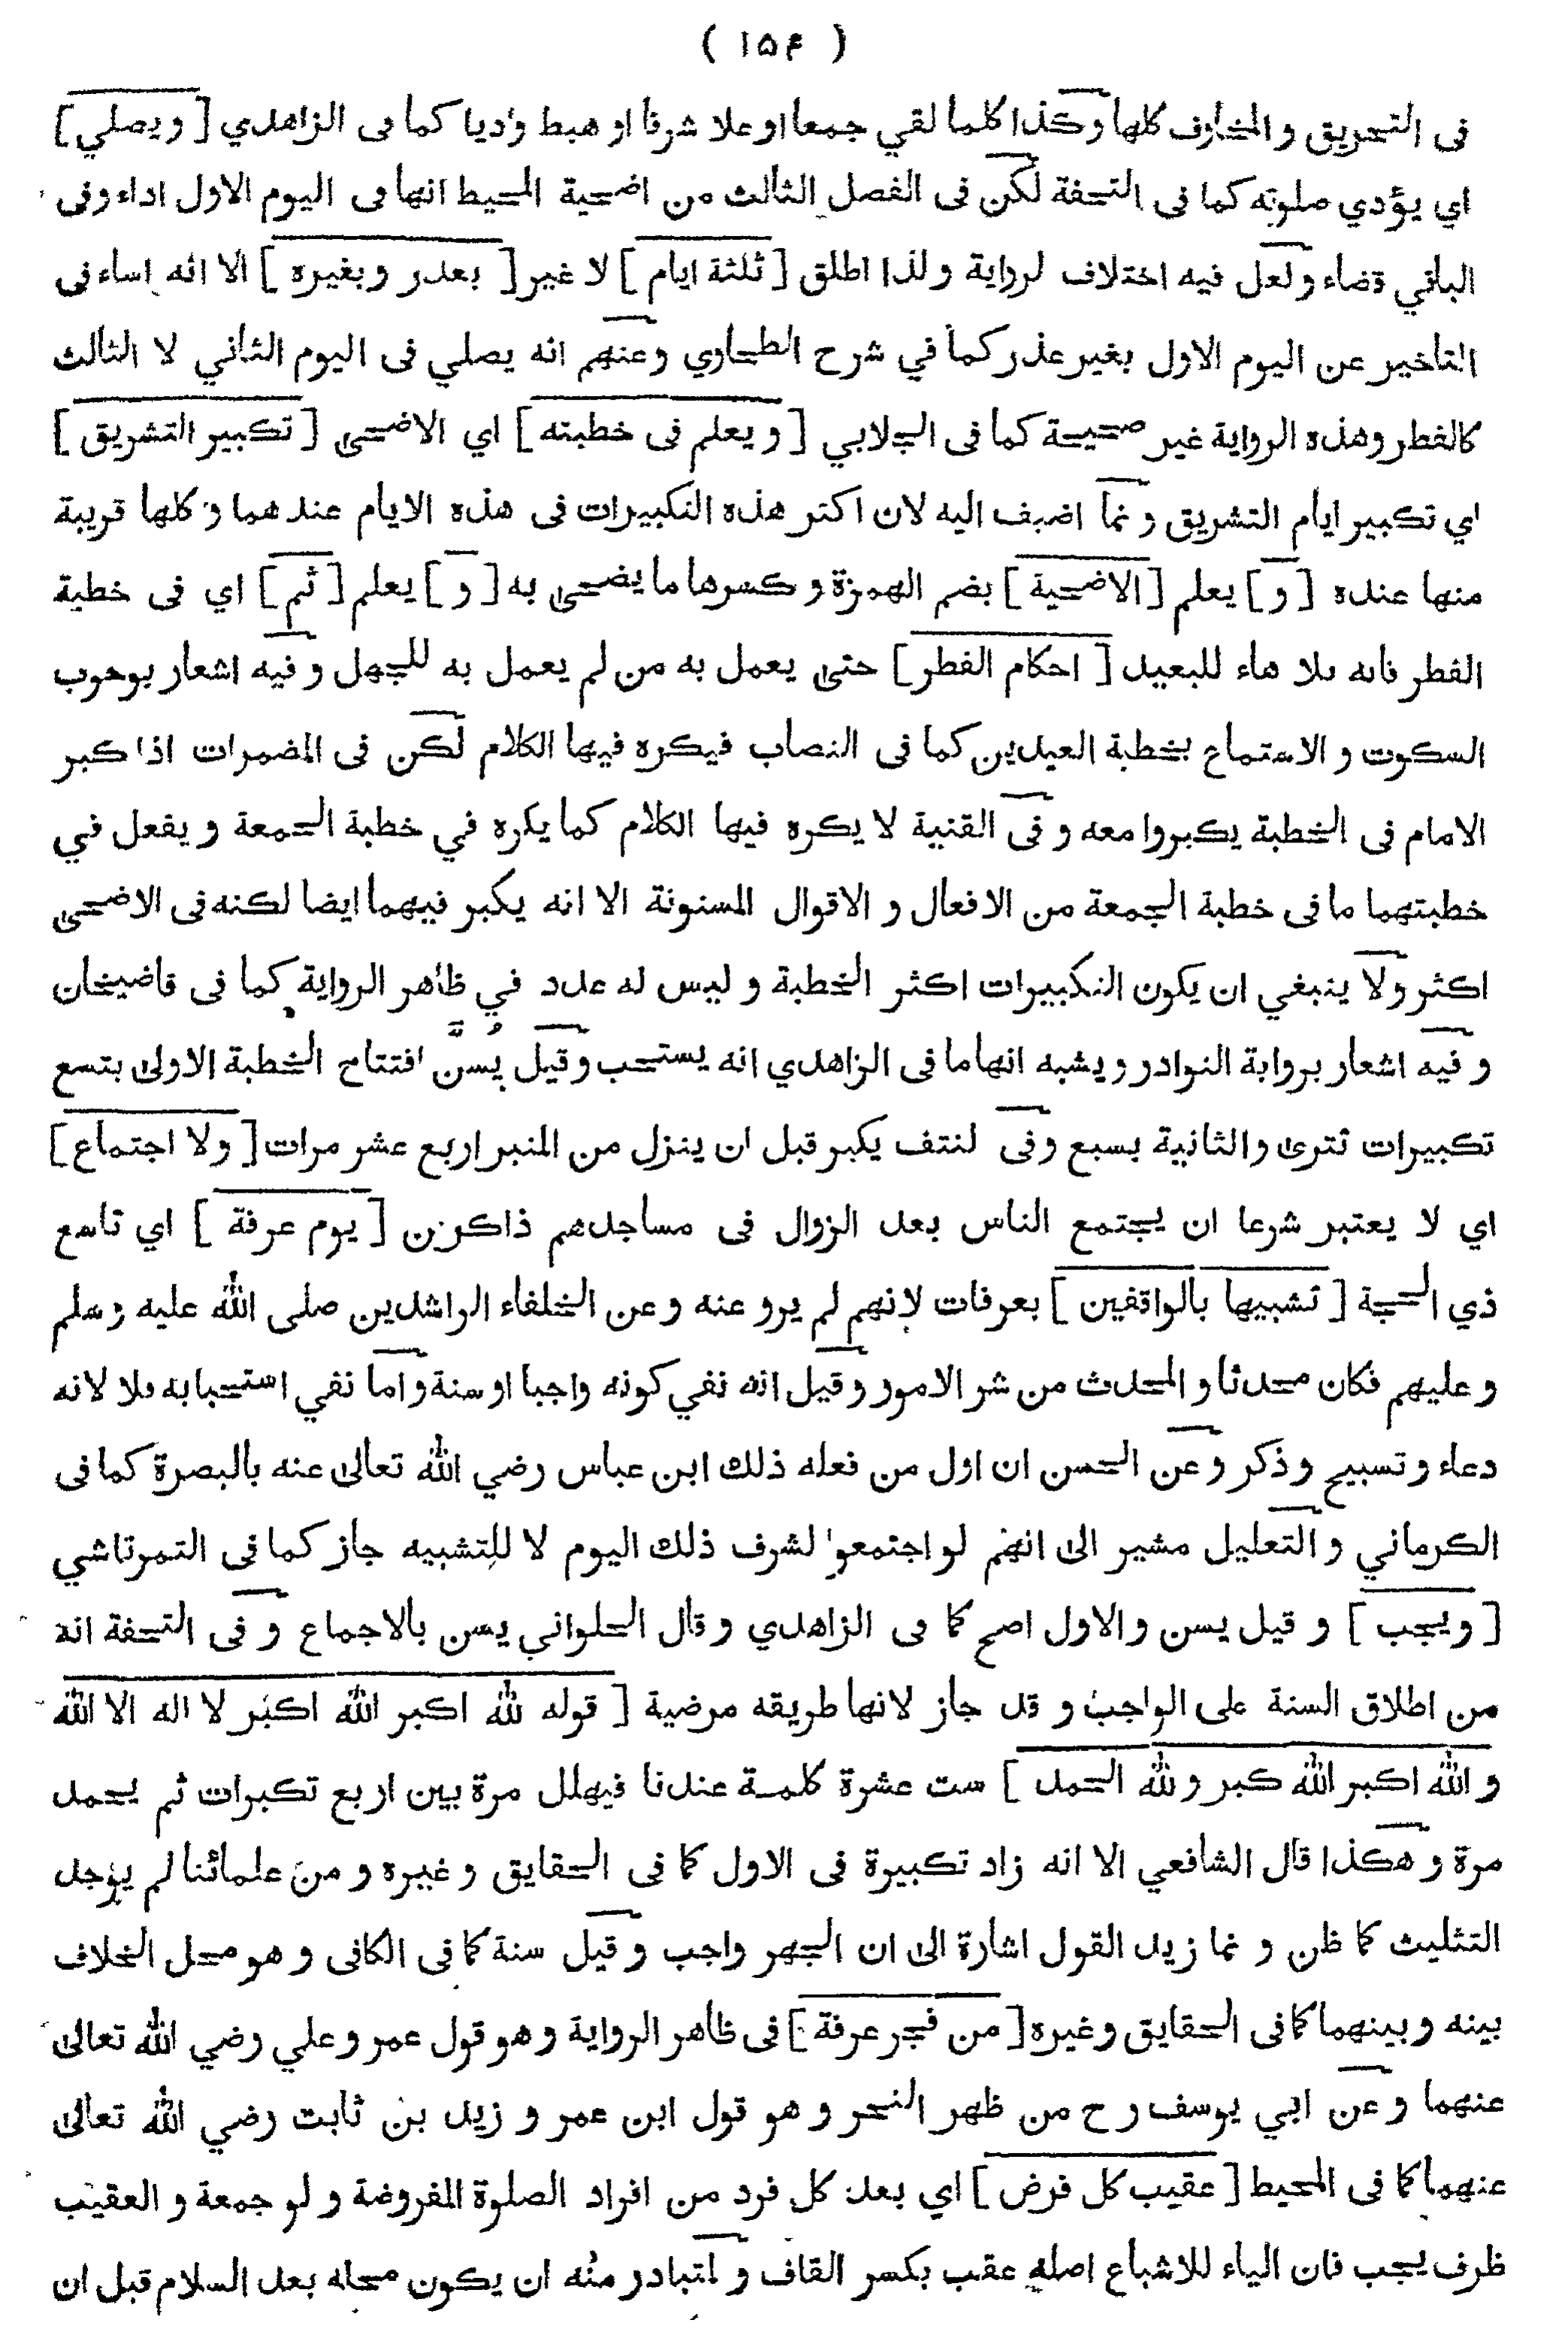 ( ١٥۴ )
فى التحريق و المخاوف كلها وكذا كلما لقي جمعا او علا شرفا او هبط واديا كما فى الزاهدي [ ويصلي ]
اي يؤدي صلوته كما فى التحفة لكن فى الفصل الثالث من اضحية المحيط انها فى اليوم الاول اداء وفى
الباقي قضاء ولعل فيه اختلاف لرواية ولذا اطلق [ ثلثة ايام ] لا غير [ بعذر وبغيره ] الا انه اساء فى
التاخير عن اليوم الاول بغير عذر كما في شرح الطحاوي وعنهم انه يصلي فى اليوم الثاني لا الثالث
كالفطر وهذه الرواية غير صحيحة كما فى الجلابي [ ويعلم فى خطبته ] اي الاضحى [ تكبير التشريق ]
اي تكبير ايام التشريق و نما اضيف اليه لان اكثر هذه التكبيرات فى هذه الايام عندهما و كلها قريبة
منها عنده [ و ] يعلم [ الاضحية ] بضم الهمزة و كسرها ما يضحى به [ و ] يعلم [ ثم ] اي فى خطبة
الفطر فانه بلا هاء للبعيد [ احكام الفطر ] حتى يعمل به من لم يعمل به للجهل و فيه اشعار بوجوب
السكوت و الاستماع بخطبة العيدين كما فى النصاب فيكره فيها الكلام لكن فى المضمرات اذا كبر
الامام فى الخطبة يكبروا معه و فى القنية لا يكره فيها الكلام كما يكره في خطبة الجمعة و يفعل في
خطبتهما ما فى خطبة الجمعة من الافعال و الاقوال المسنونة الا انه يكبر فيهما ايضا لكنه فى الاضحى
اكثر ولا ينبغي ان يكون التكبيرات اكثر الخطبة و ليس له عدد في ظاهر الرواية كما فى قاضيخان
و فيه اشعار برواية النوادر و يشبه انها ما فى الزاهدي انه يستحب وقيل يُسنّ افتتاح الخطبة الاولى بتسع
تكبيرات تترى والثانية بسبع وفى لنتف يكبر قبل ان ينزل من المنبر اربع عشر مرات [ ولا اجتماع ]
اي لا يعتبر شرعا ان يجتمع الناس بعد الزوال فى مساجدهم ذاكرين [ يوم عرفة ] اي تاسع
ذي الحجة [ تشبيها بالواقفين ] بعرفات لانهم لم يرو عنه وعن الخلفاء الراشدين صلى الله عليه وسلم
و عليهم فكان محدثا و المحدث من شر الامور و قيل انه نفي كونه واجبا او سنة و اما نفي استحبابه فلا لانه
دعاء و تسبيح و ذكر و عن الحسن ان اول من فعله ذلك ابن عباس رضي الله تعالى عنه بالبصرة كما فى
الكرماني و التعليل مشير الى انهم لو اجتمعوا لشرف ذلك اليوم لا للتشبيه جاز كما فى التمرتاشي
[ ويجب ] و قيل يسن والاول اصح كما فى الزاهدي وقال الحلواني يسن بالاجماع و فى التحفة انه
من اطلاق السنة على الواجب و قد جاز لانها طريقه مرضية [ قوله لله اكبر الله اكبر لا اله الا الله
و الله اكبر الله كبر ولله الحمد ] ست عشرة كلمة عندنا فيهلل مرة بين اربع تكبرات ثم يحمد
مرة و هكذا قال الشافعي الا انه زاد تكبيرة فى الاول كما فى الحقايق وغيره و من علمائنا لم يوجد
التثليث كما ظن و نما زيد القول اشارة الى ان الجهر واجب و قيل سنة كما فى الكافى و هو محل الخلاف
بينه وبينهما كما فى الحقايق وغيره [ من فجر عرفة ] فى ظاهر الرواية و هو قول عمر وعلي رضي الله تعالى
عنهما و عن ابي يوسف رح من ظهر النحر و هو قول ابن عمر و زيد بن ثابت رضي الله تعالى
عنهما كما فى المحيط [ عقيب كل فرض ] اي بعد كل فرد من افراد الصلوة المفروضة و لو جمعة و العقيب
ظرف يجب فان الياء للاشباع اصله عقب بكسر القاف و لمتبادر منه ان يكون محله بعد السلام قبل ان